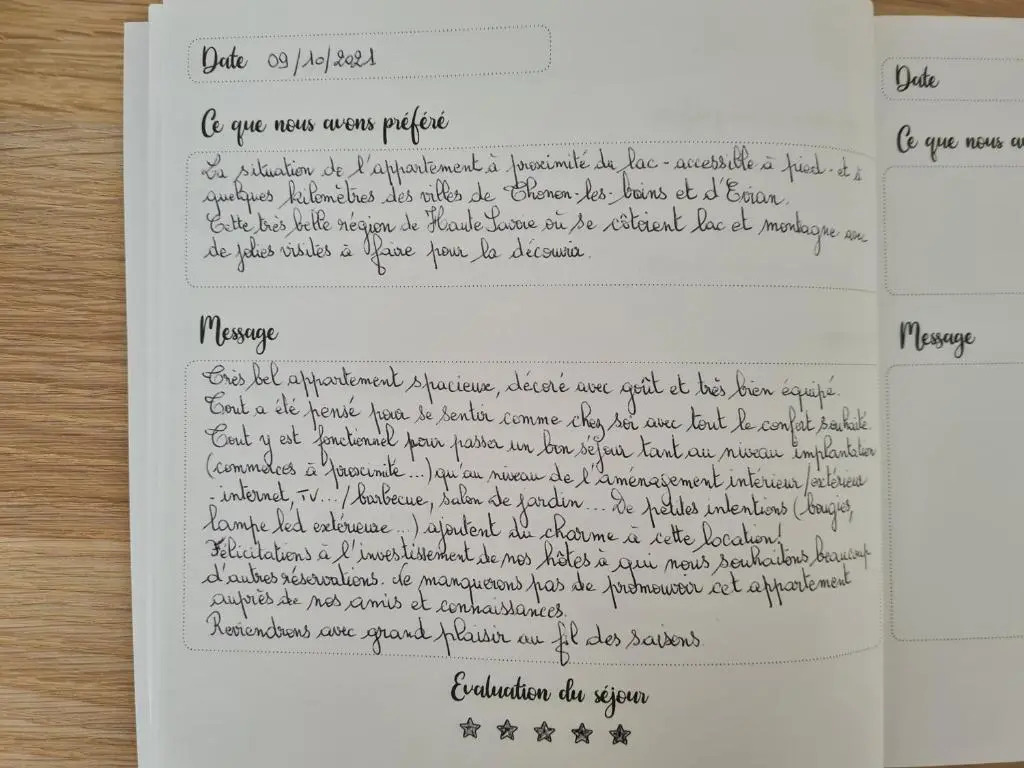 Date 09/10/2021
Ce que nous avons préféré
La situation de l'appartement à proximité du lac - accessible à pied - et à
quelques kilomètres des villes de Thonon-les-bains et d'Evian.
Cette très belle région de Haute Savoie où se côtoient lac et montagne avec
de jolies visites à faire pour la découvrir.
Message
Très bel appartement spacieux, décoré avec goût et très bien équipé.
Tout a été pensé pour se sentir comme chez soi avec tout le confort souhaité.
Tout y est fonctionnel pour passer un bon séjour tant au niveau implantation
(commerces à proximité ...) qu'au niveau de l'aménagement intérieur/extérieur
- internet, TV .../barbecue, salon de jardin ... De petites intentions (bougies,
lampe léd extérieure ...) ajoutent du charme à cette location!
Félicitations à l'investissement de nos hôtes à qui nous souhaitons beaucoup
d'autres réservations. Ne manquerons pas de promouvoir cet appartement
auprès de nos amis et connaissances.
Reviendrons avec grand plaisir au fil des saisons.
Evaluation du séjour
Date
Ce que nous av
Message